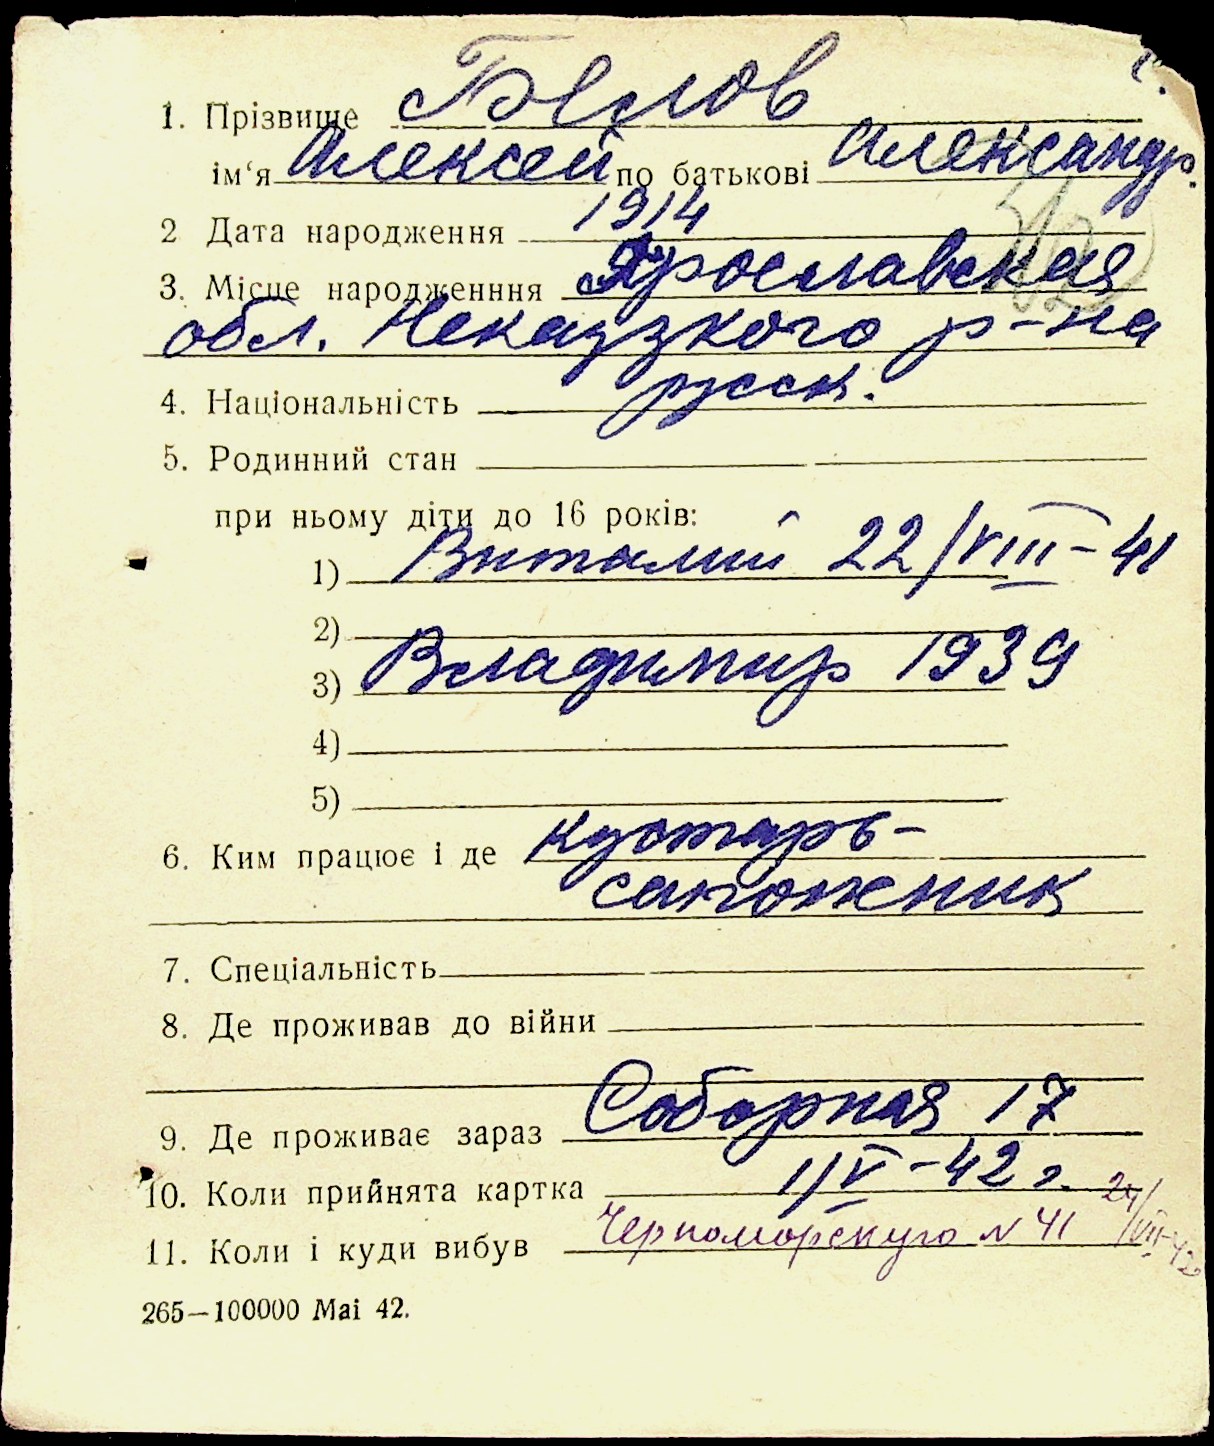 1. Прізвище Белов
ім‘я Алексей по батькові Александр.
2 Дата народження 1914
3. Місце народженння Ярославская
обл. Некаузкого р-на
4. Національність русск.
5. Родинний стан
при ньому діти до 16 років:
1) Виталий 22/VIII-41
2)
3) Владимир 1939
4)
5)
6. Ким працює і де кустарь-
сапожник
7. Спеціальність
8. Де проживав до війни
9. Де проживає зараз Соборная 17
10. Коли прийнята картка 1/V-42 г.
11. Коли і куди вибув Черноморскую N 41 24/VII-42
265—100000 Mai 42.